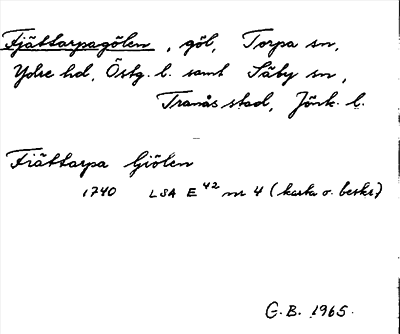 Fjättarpagölen, göl, Torpa sn,
Ydre hd, Östg. l. samt Säby sn,
Tranås stad, Jönk. l.
Fiättarpa Giölen
1740 LSA E 42 nr 4 (karta o. beskr)
G.B. 1965.